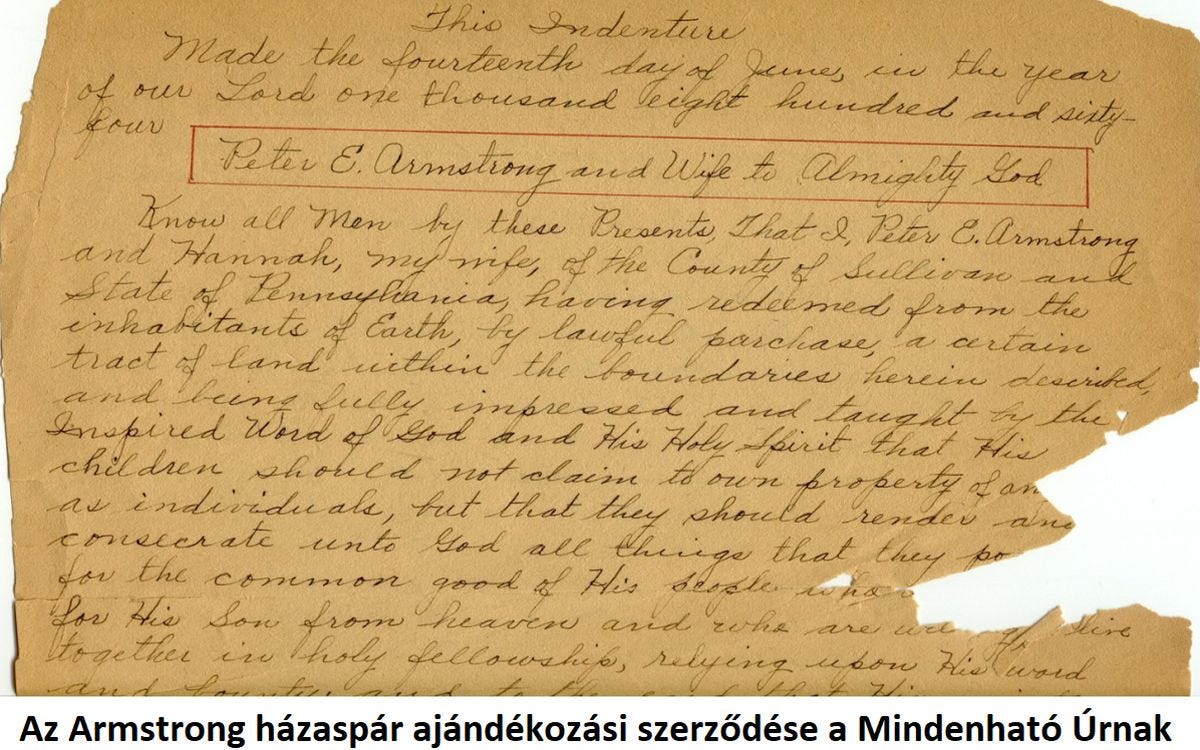 This Indenture
Made the fourteenth day of June, in the year
of our Lord one thousand eight hundred and sixty-
four
Peter E. Armstrong and Wife to Almighty God
Know all Men by these Presents, That I, Peter E. Armstrong
and Hannah, my wife, of the County of Sullivan and
State of Pennsylvania, having redeemed from the
inhabitants of Earth, by lawful purchase, a certain
tract of land within the boundaries herein described,
and being fully impressed and taught by the
Inspired Word of God and His Holy Spirit that His
children should not claim to own property of an
as individuals, but that they should render and
consecrate unto God all things that they po
for the common good of His people who
for His Son from heaven and who are live
together in holy fellowship, relying upon His word
and bounty, and to the end that His
Az Armstrong házaspár ajándékozási szerződése a Mindenható Úrnak